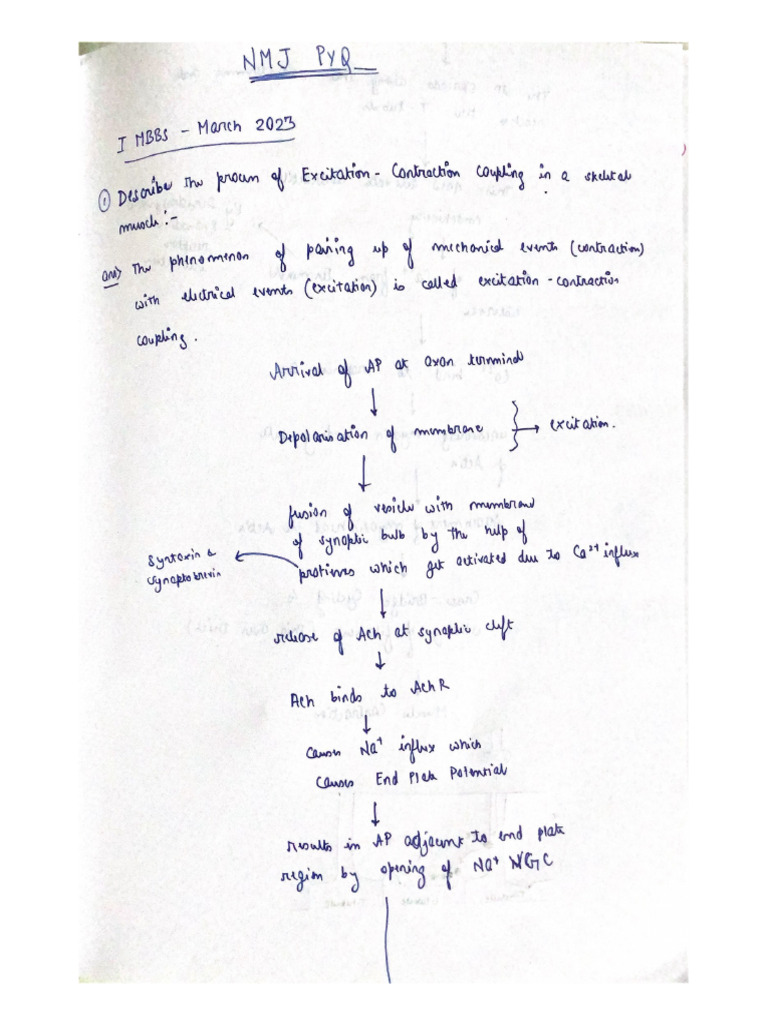 NMJ PYQ
I MBBS - March 2023
① Describe the process of Excitation - Contraction coupling in a skeletal
muscle :-
ans) The phenomenon of pairing up of mechanical events (contraction)
with electrical events (excitation) is called excitation - contraction
coupling.
Arrival of AP at axon terminal
↓
Depolarisation of membrane } → excitation.
↓
fusion of vesicle with membrane
of synaptic bulb by the help of
proteins which get activated due to Ca²⁺ influx
Syntaxin &
synaptobrevin
↓
release of Ach at synaptic cleft
↓
Ach binds to AchR
↓
causes Na⁺ influx which
causes End Plate Potential
↓
results in AP adjacent to end plate
region by opening of Na⁺ VGC